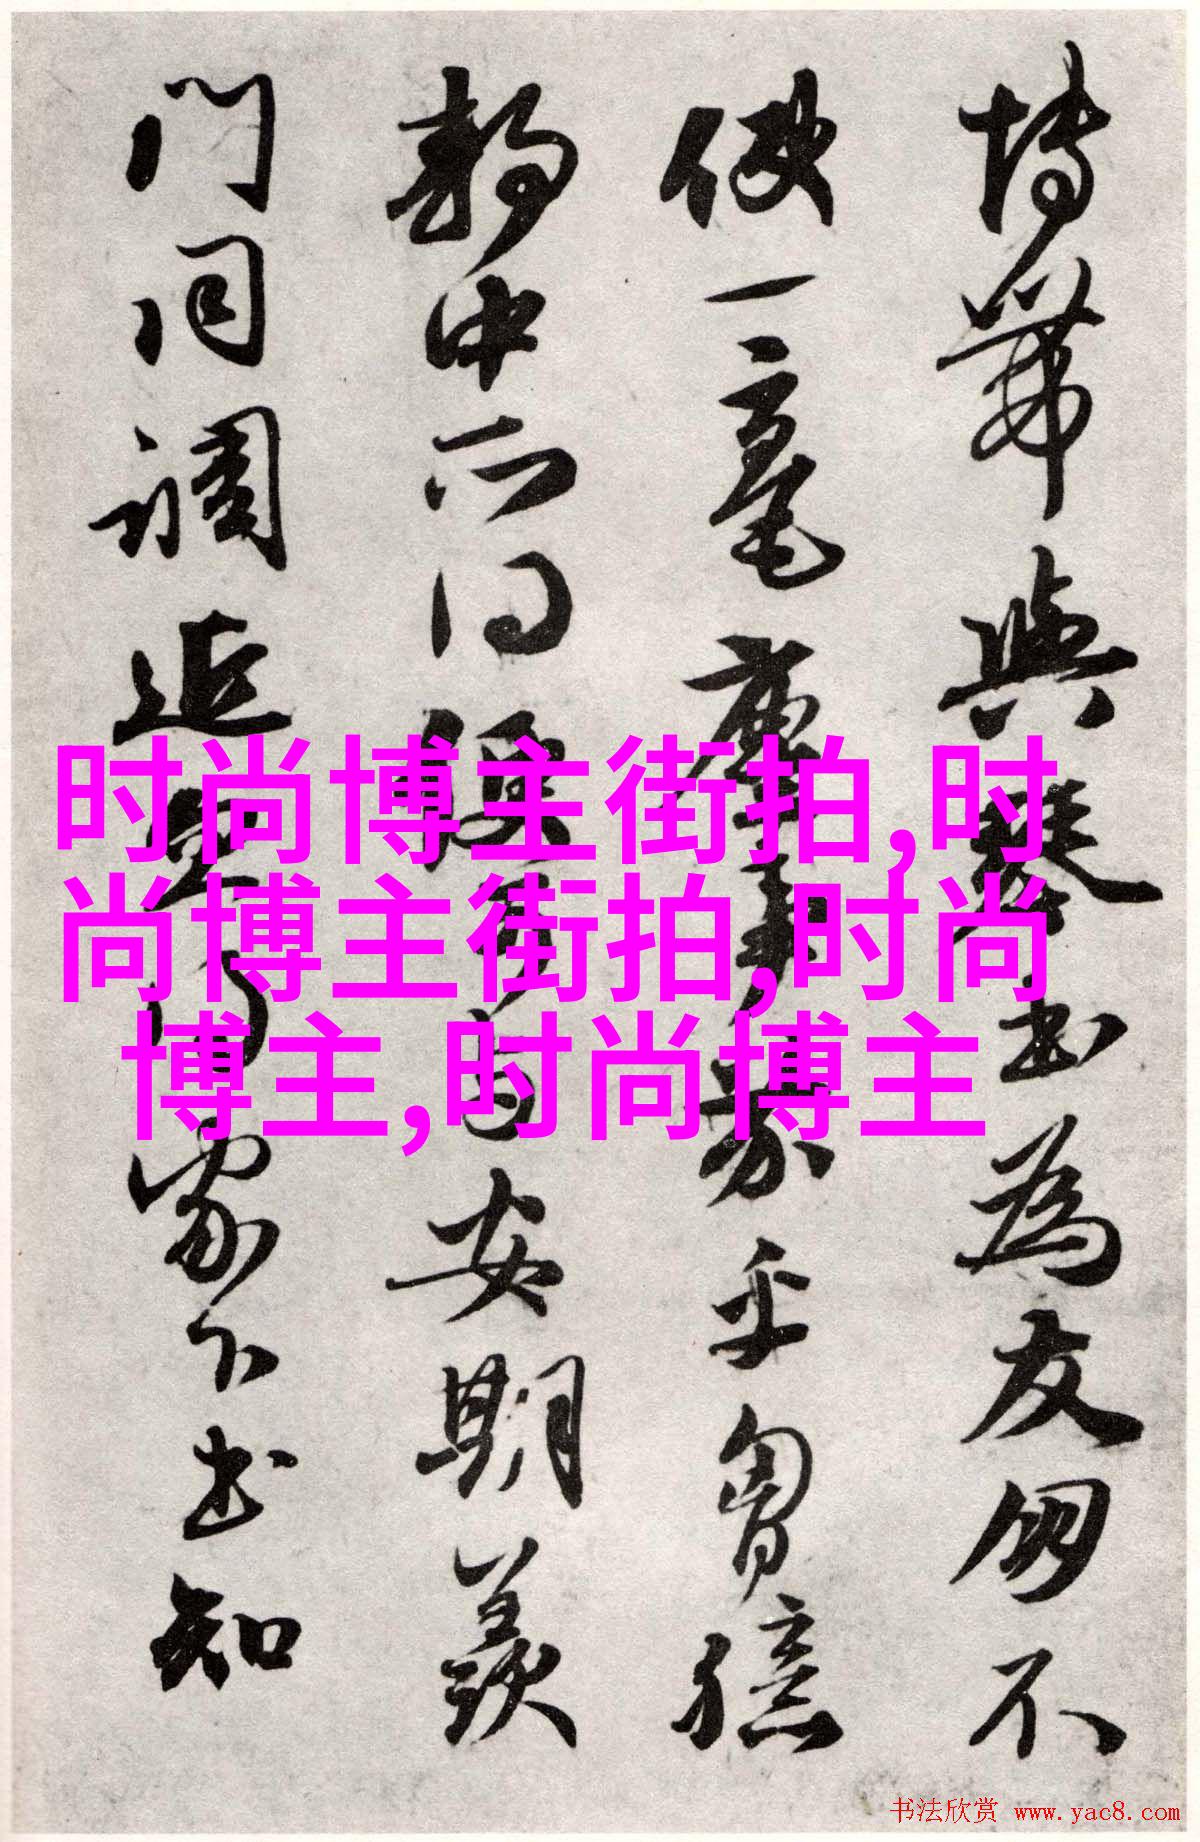 博帶與琴書為友朋不
使一毫塵事乎胷臆
静中所得安期羡
門同調近家下書知
时尚博主街拍,时
尚博主街拍,时尚
博主,时尚博主
书法欣赏 www.yac8.com